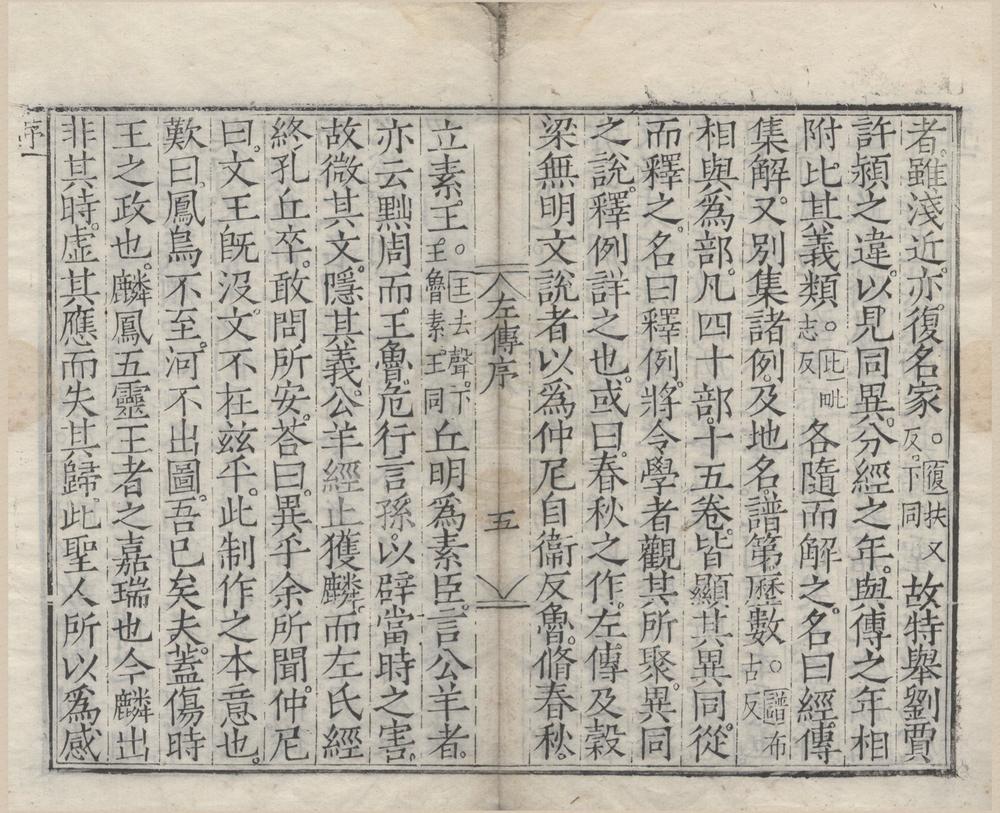 者。雖淺近。亦。復名家。〇復扶又反。下同故特舉劉賈
許潁之違。以見同異。分經之年。與傳之年相
附。比其義類。〇比毗志反各隨而解之。名曰經傳
集解。又別集諸例。及地名。譜第。歷數。〇譜布古反
相與爲部。凡四十部。十五卷。皆顯其異同。從
而釋之。名曰釋例。將令學者觀其所聚。異同
之說。釋例詳之也。或曰。春秋之作。左傳及穀
梁無明文。說者以爲仲尼自衞反魯。脩春秋。
左傳序 五
立素王。〇王去聲。下王魯素王同丘明爲素臣。言公羊者。
亦云黜周而王魯。危行言孫。以辟當時之害。
故微其文。隱其義。公羊經止獲麟。而左氏經
終孔丘卒。敢問所安。荅曰。異乎余所聞。仲尼
曰。文王旣沒。文不在茲乎。此制作之本意也。
歎曰。鳳鳥不至。河不出圖。吾已矣夫。蓋傷時
王之政也。麟鳳五靈。王者之嘉瑞也。今麟出
非其時。虛其應而失其歸。此聖人所以爲感
序一